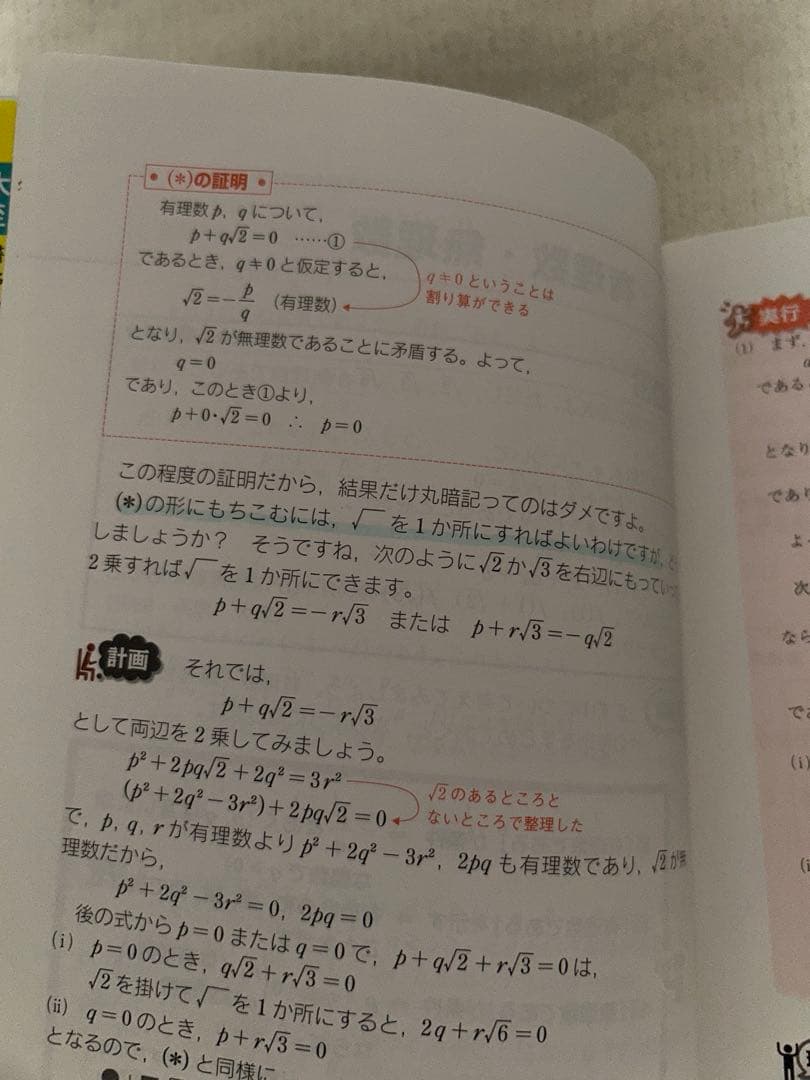 (*)の証明
有理数p, qについて,
p+q√2=0 ……①
であるとき, q≠0と仮定すると,
√2=-p/q (有理数)
q≠0ということは
割り算ができる
となり, √2が無理数であることに矛盾する。よって,
q=0
であり, このとき①より,
p+0・√2=0 ∴ p=0
この程度の証明だから, 結果だけ丸暗記ってのはダメですよ。
(*)の形にもちこむには, √ を1か所にすればよいわけですが,
しましょうか? そうですね, 次のように√2か√3を右辺にもってい
2乗すれば√ を1か所にできます。
p+q√2=-r√3 または p+r√3=-q√2
計画 それでは,
p+q√2=-r√3
として両辺を2乗してみましょう。
p²+2pq√2+2q²=3r²
(p²+2q²-3r²)+2pq√2=0
√2のあるところと
ないところで整理した
で, p, q, rが有理数よりp²+2q²-3r², 2pqも有理数であり, √2が無
理数だから,
p²+2q²-3r²=0, 2pq=0
後の式からp=0またはq=0で, p+q√2+r√3=0は,
(i) p=0のとき, q√2+r√3=0
√2を掛けて√ を1か所にすると, 2q+r√6=0
(ii) q=0のとき, p+r√3=0
となるので, (*)と同様に
実行
(1) まず,
である
となり
であり
よっ
次
なら
であ
(i)